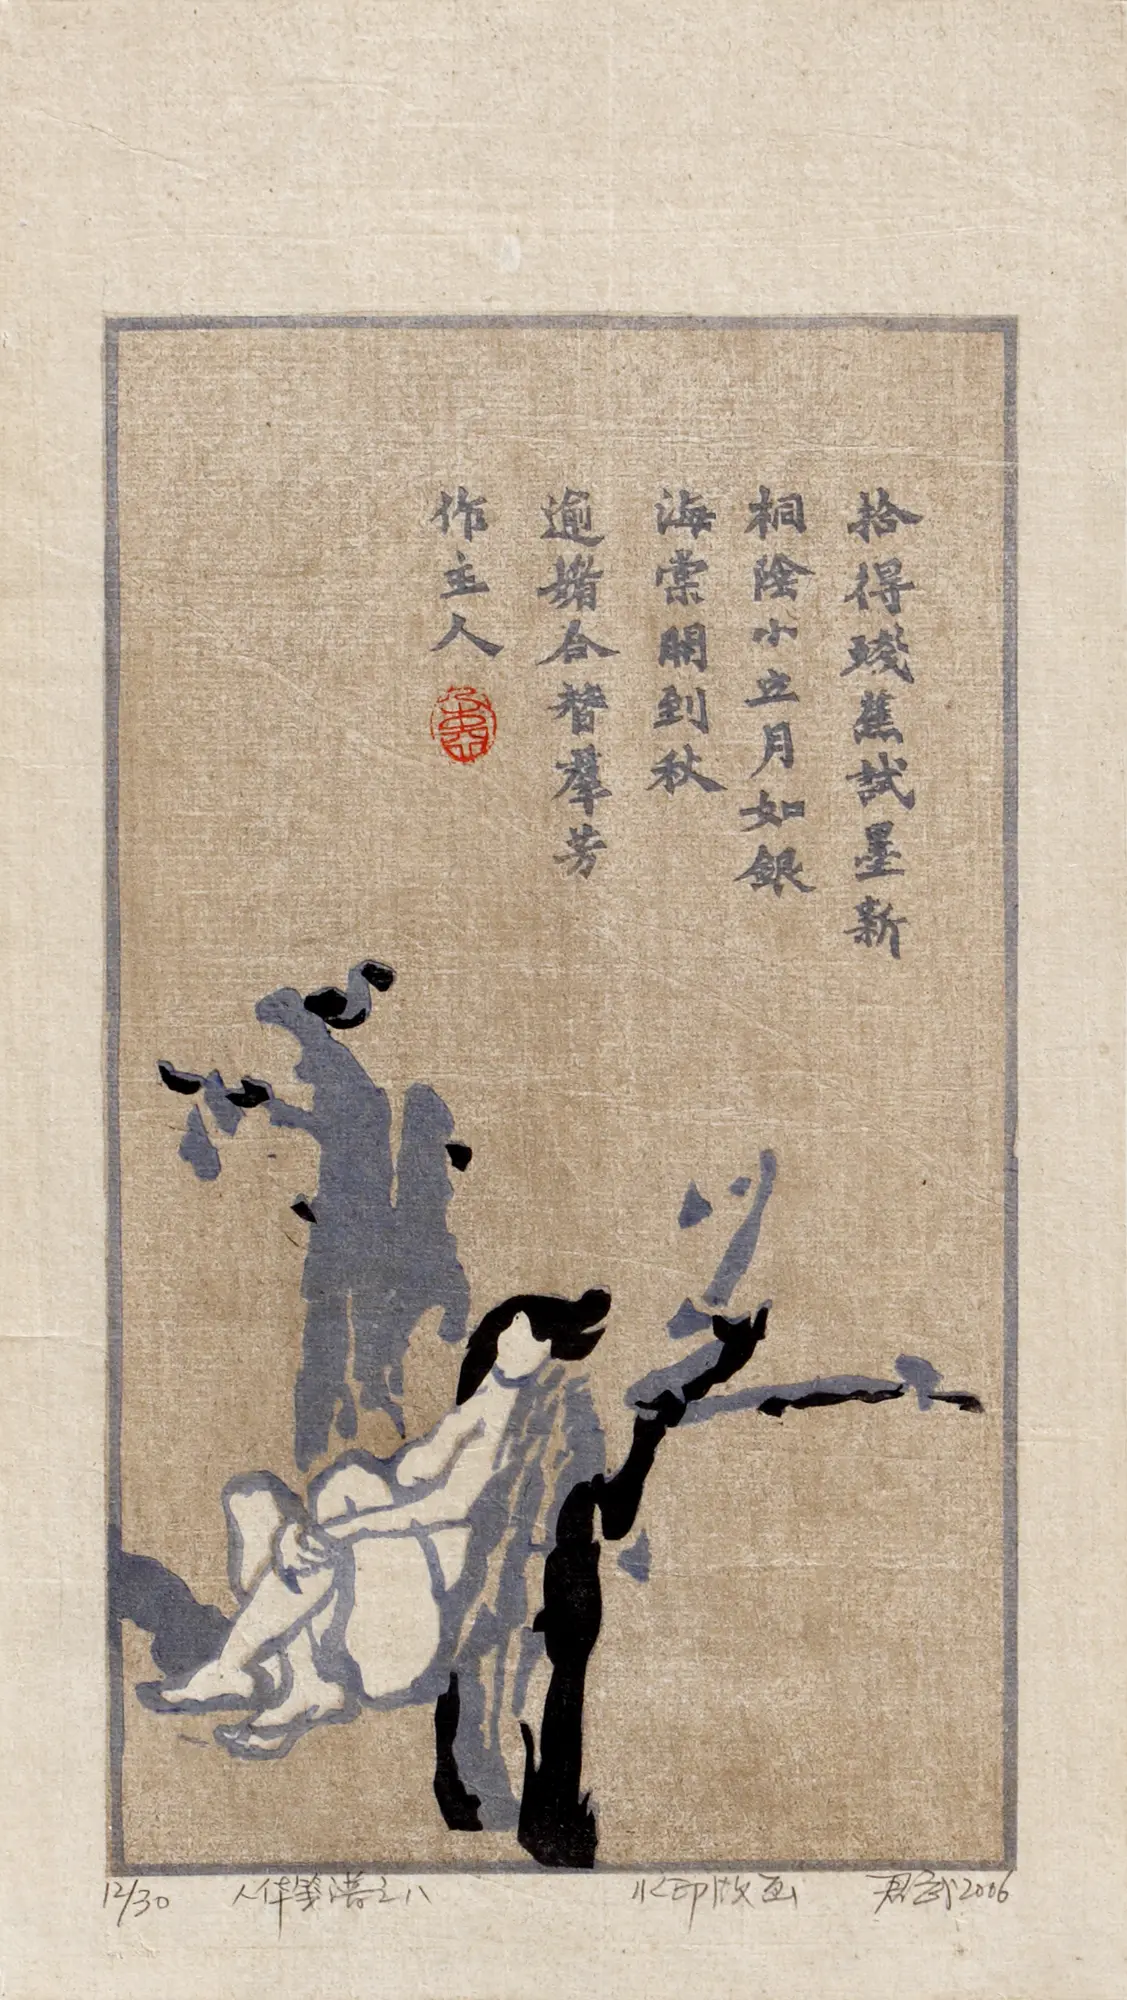 拾得残蕉試墨新
桐陰小立月如銀
海棠開到秋
逾媚合替羣芳
作主人
12/30
人体笺谱之八
水印版画
君武2006